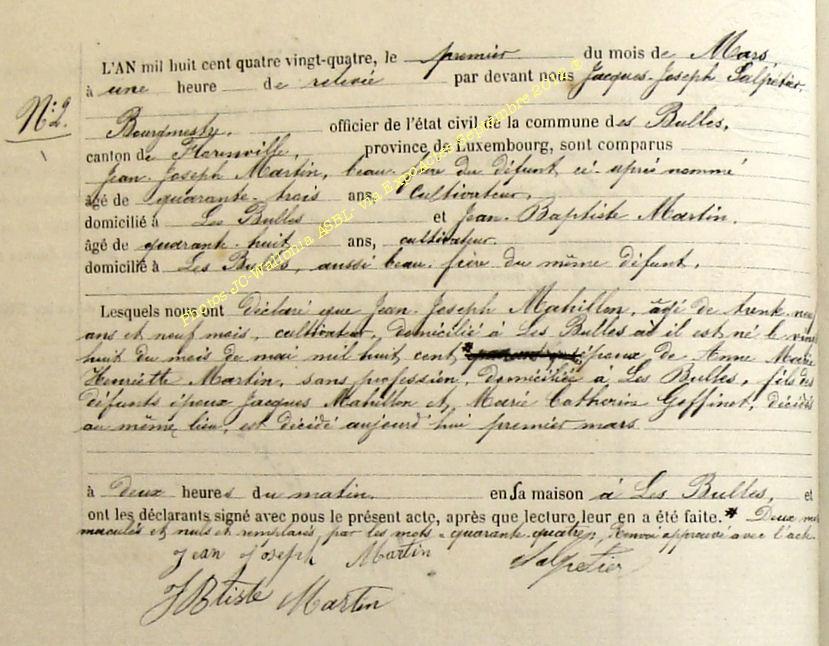 L'AN mil huit cent quatre vingt-quatre, le premier du mois de Mars
à une heure de relevée par devant nous Jacques-Joseph Salpetier,
N:2.
Bourgmestre, officier de l'état civil de la commune des Bulles,
canton de Florenville, province de Luxembourg, sont comparus
Jean-Joseph Martin, beau-frère du défunt ci-après nommé
âgé de quarante-trois ans, cultivateur,
domicilié à Les Bulles et Jean-Baptiste Martin.
âgé de quarante-huit ans, cultivateur.
domicilié à Les Bulles, aussi beau-frère du même défunt.
Lesquels nous ont déclaré que Jean-Joseph Mahillon, âgé de trente-neuf
ans et neuf mois, cultivateur, domicilié à Les Bulles où il est né le vingt
huit du mois de mai mil huit cent * époux de Anne Marie
Henriette Martin, sans profession, domiciliée à Les Bulles, fils des
défunts époux Jacques Mahillon et Marie Catherin Goffinet, décédés
au même lieu, est décédé aujourd'hui premier mars
à deux heures du matin. en sa maison à Les Bulles, et
ont les déclarants signé avec nous le présent acte, après que lecture leur en a été faite. * Deux mots
maculés et nuls et remplacés par les mots "quarante-quatre", Renvoi approuvé avec l'acte
Jean joseph Martin Salpetier
JBtiste Martin
Photos JC-Wallonia ASBL- via ExpoActes Septembre